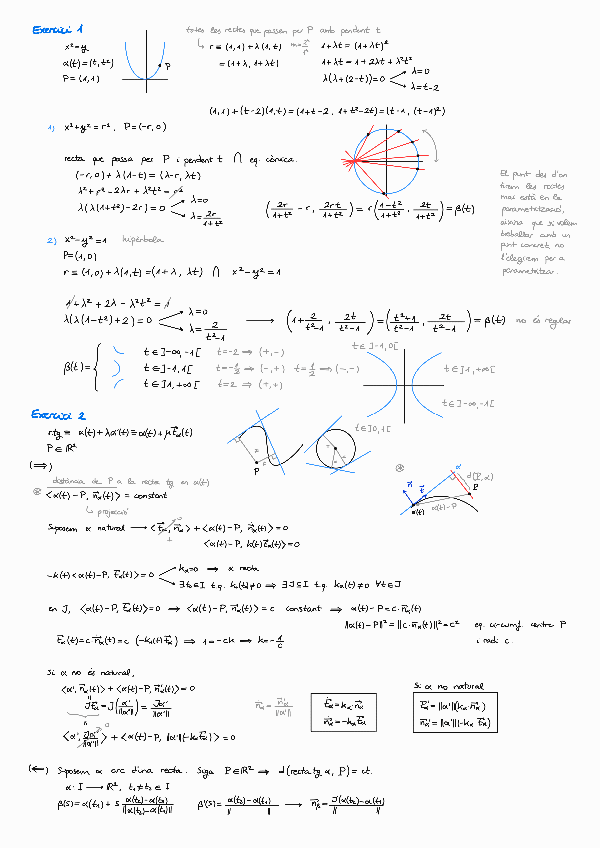 Exercici 1
totes les rectes que passen per P amb pendent t
x² = y
α(t) = (t, t²)
P = (1,1)
P
↳ r ≡ (1,1) + λ(1,t)
= (1+λ, 1+λt)
1+λt = (1+λ)²
1+λt = 1+2λ+λ²
λ=0
λ=t-2
(1,1) + (t-2)(1,t) = (1+t-2, 1+t²-2t) = (t-1, (t-1)²)
1) x²+y² = r², P=(-r,0)
recta que passa per P i pendent t ∩ eq. cònica.
(-r,0) + λ(1,t) = (λ-r, λt)
λ²+r²-2λr+λ²t² = r²
λ(λ(1+t²)-2r) = 0
λ=0
λ = 2r/(1+t²)
(2r/(1+t²) - r, 2rt/(1+t²)) = r((1-t²)/(1+t²), 2t/(1+t²)) = β(t)
El punt des d'on
tirem les rectes
mai està en la
parametrització,
així que si volem
treballar amb un
punt concret, no
l'elegirem per a
parametritzar.
2) x²-y² = 1 hipèrbola
P=(1,0)
r ≡ (1,0) + λ(1,t) = (1+λ, λt) ∩ x²-y² = 1
1+λ²+2λ-λ²t² = 1
λ(λ(1-t²)+2) = 0
λ=0
λ = 2/(t²-1)
⟶ (1+2/(t²-1), 2t/(t²-1)) = ((t²+1)/(t²-1), 2t/(t²-1)) = β(t) no és regular
β(t) =
t∈]-∞,-1[ t=-2 ⇒ (+,-)
t∈]-1,1[ t=-1/2 ⇒ (-,+) t=1/2 ⇒ (-,-)
t∈]1,+∞[ t=2 ⇒ (+,+)
t∈]-1,0[
t∈]1,+∞[
t∈]-∞,-1[
t∈]0,1[
Exercici 2
r tg ≡ α(t)+λα'(t) ≡ α(t)+μt⃗α(t)
P∈ℝ²
P
(⇒)
distància de P a la recta tg en α(t)
⊛ <α(t)-P, n⃗α(t)> = constant
↳ projecció
⊛
α'
d(P,α)
P
n⃗
t⃗
α(t)
α(t)-P
Suposem α natural ⟶ <t⃗α, n⃗α> + <α(t)-P, n⃗'α(t)> = 0
<α(t)-P, k(t)t⃗α(t)> = 0
-k(t)<α(t)-P, t⃗α(t)> = 0
kα=0 ⟶ α recta
∃t₀∈I t.q. kα(t₀)≠0 ⇒ ∃J⊆I t.q. kα(t)≠0 ∀t∈J
en J, <α(t)-P, t⃗α(t)>=0 ⟶ <α(t)-P, n⃗α(t)> = c constant ⟹ α(t)-P = c·n⃗α(t)
‖α(t)-P‖² = ‖c·n⃗α(t)‖² = c² eq. circumf. centre P
i radi c.
t⃗α(t) = c n⃗'α(t) = c(-kα(t)t⃗α) ⟹ 1=-ck ⟹ k=-1/c
Si α no és natural,
<α', n⃗α(t)> + <α(t)-P, n⃗'α(t)> = 0
Jt⃗α = J(α'/‖α'‖) = Jα'/‖α'‖
<α', Jα'/‖α'‖> + <α(t)-P, ‖α'‖(-kαt⃗α)> = 0
t⃗'α = kα·n⃗α
n⃗'α = -kαt⃗α
Si α no natural
t⃗'α = ‖α'‖(kα·n⃗α)
n⃗'α = ‖α'‖(-kα t⃗α)
(⇐) Suposem α arc d'una recta. Siga P∈ℝ² ⟹ d(recta tg α, P) = ct.
α: I ⟶ ℝ², t₁≠t₂∈I
β(s) = α(t₁) + s (α(t₂)-α(t₁))/‖α(t₂)-α(t₁)‖ β'(s) = (α(t₂)-α(t₁))/‖ ‖ ⟶ n⃗β = J(α(t₂)-α(t₁))/‖ ‖